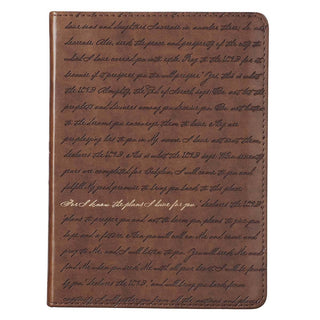 have sons and daughters Increase in number there; do not
decrease Also, seek the peace and prosperity of the city to
which I have carried you into exile. Pray to the LORD for it,
because if it prospers, you too will prosper." Yes, this is what
the LORD Almighty, the God of Israel, says: "Do not let the
prophets and diviners among you deceive you. Do not listen
to the dreams you encourage them to have. They are
prophesying lies to you in My name. I have not sent them,"
declares the LORD. This is what the LORD says: "When seventy
years are completed for Babylon, I will come to you and
fulfill My good promise to bring you back to this place.
For I know the plans I have for you," declares the LORD,
"plans to prosper you and not to harm you, plans to give you
hope and a future. Then you will call on Me and come and
pray to Me, and I will listen to you. You will seek Me and
find Me when you seek Me with all your heart. I will be found
by you," declares the LORD, "and will bring you back from